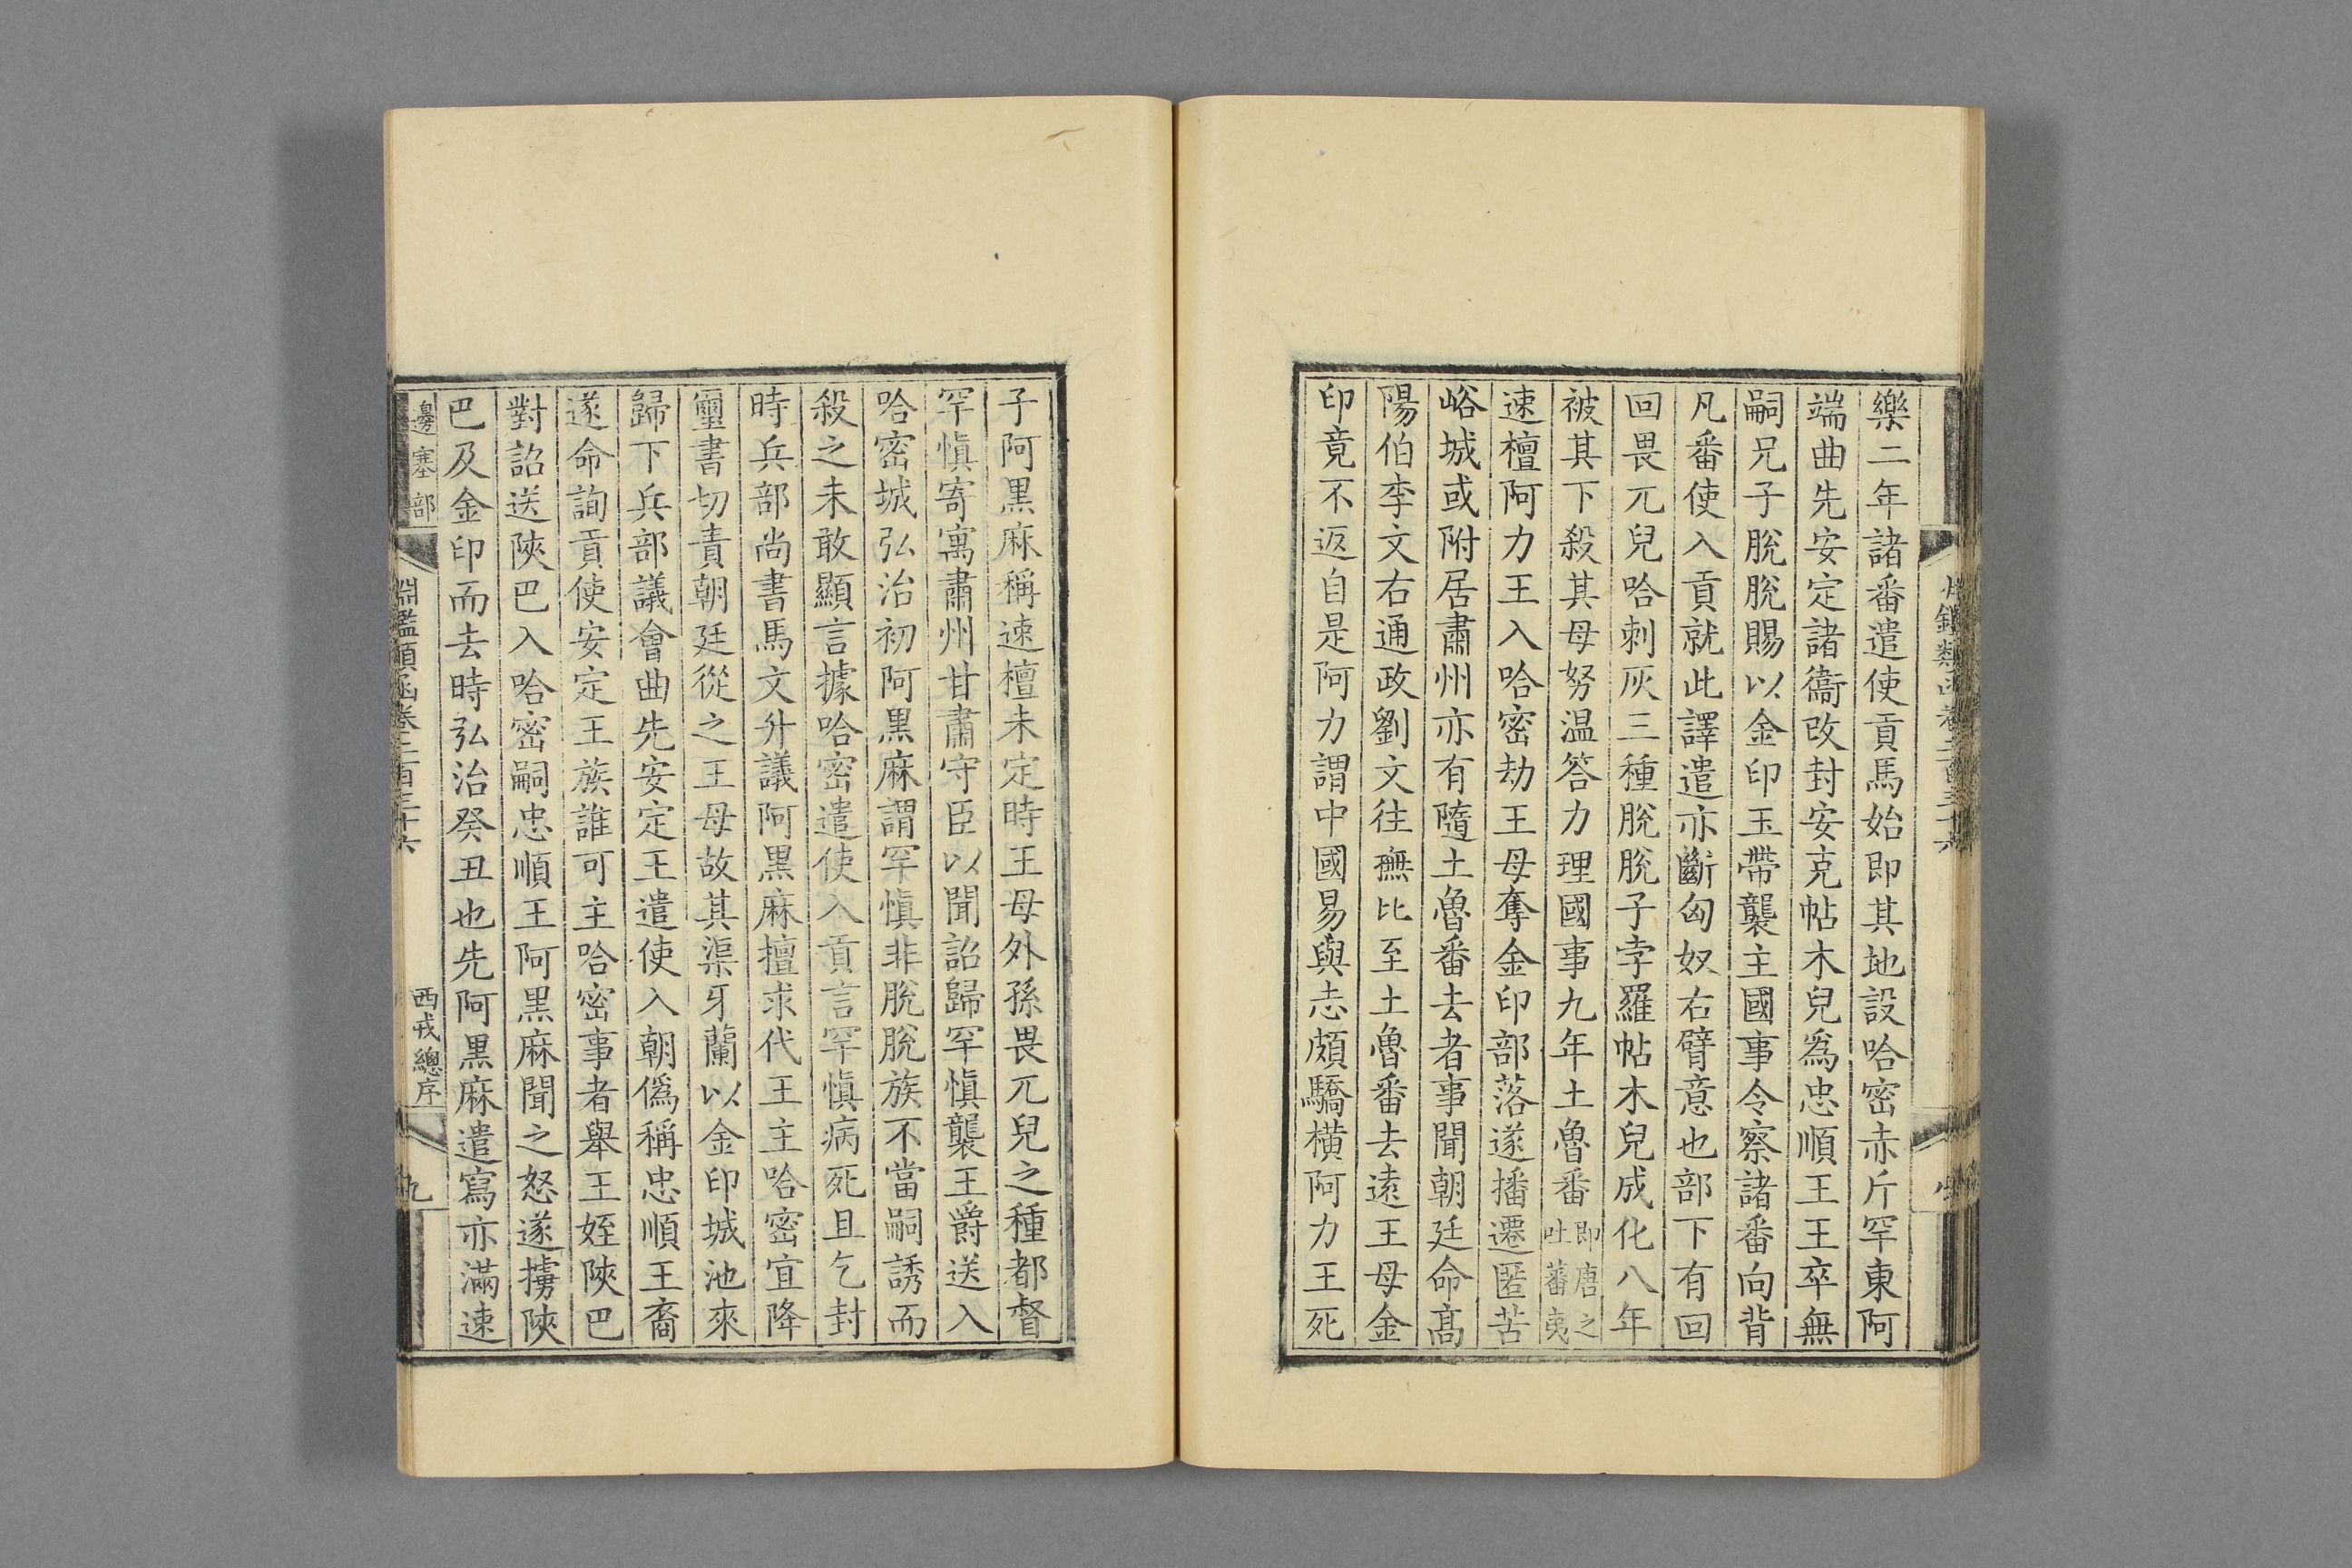 樂二年諸番遣使貢馬始即其地設哈密赤斤罕東阿
端曲先安定諸衞改封安克帖木兒爲忠順王王卒無
嗣兄子脫脫賜以金印玉帶襲主國事令察諸番向背
凡番使入貢就此譯遣亦斷匈奴右臂意也部下有回
回畏兀兒哈剌灰三種脫脫子孛羅帖木兒成化八年
被其下殺其母努温答力理國事九年土魯番即唐之吐蕃夷
速檀阿力王入哈密劫王母奪金印部落遂播遷匿苦
峪城或附居肅州亦有隨土魯番去者事聞朝廷命高
陽伯李文右通政劉文往撫比至土魯番去遠王母金
印竟不返自是阿力謂中國易與志頗驕橫阿力王死
子阿黑麻稱速檀未定時王母外孫畏兀兒之種都督
罕愼寄寓肅州甘肅守臣以聞詔歸罕愼襲王爵送入
哈密城弘治初阿黑麻謂罕愼非脫脫族不當嗣誘而
殺之未敢顯言據哈密遣使入貢言罕愼病死且乞封
時兵部尚書馬文升議阿黑麻擅求代王主哈密宜降
璽書切責朝廷從之王母故其渠牙蘭以金印城池來
歸下兵部議會曲先安定王遣使入朝僞稱忠順王裔
遂命詢貢使安定王族誰可主哈密事者舉王姪陝巴
對詔送陝巴入哈密嗣忠順王阿黑麻聞之怒遂擄陝
巴及金印而去時弘治癸丑也先阿黑麻遣寫亦滿速
邊塞部
淵鑑類函卷二百三十六
西戎總序
九